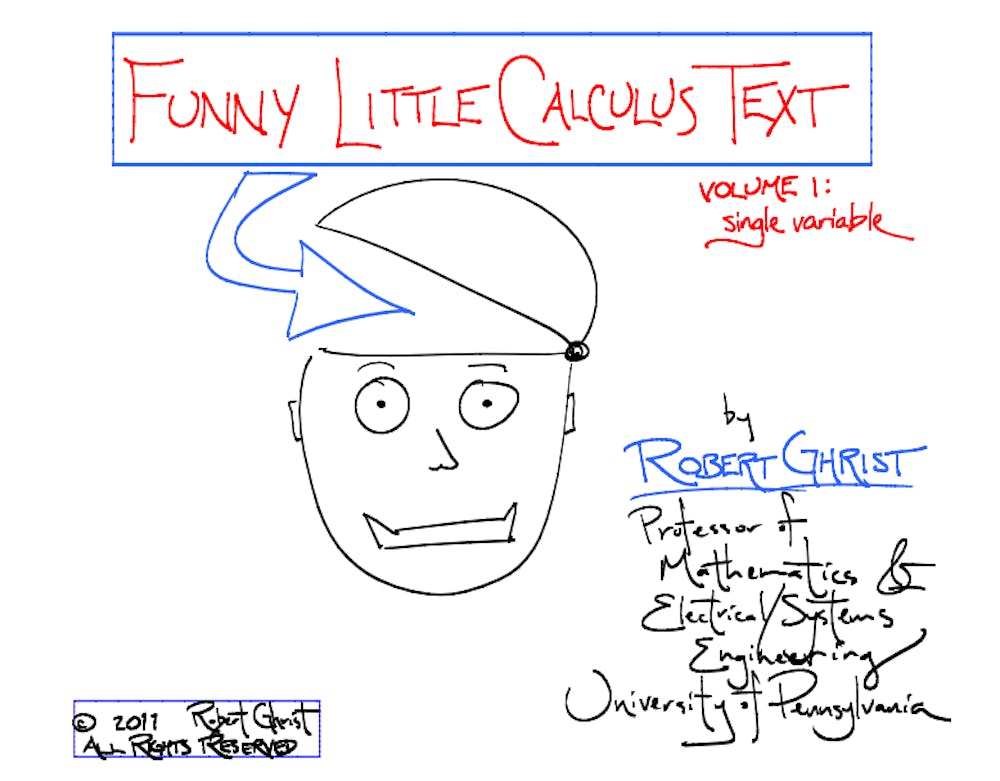 FUNNY LITTLE CALCULUS TEXT
VOLUME 1:
single variable
by
ROBERT GHRIST
Professor of
Mathematics &
Electrical/Systems
Engineering
University of Pennsylvania
© 2011 Robert Ghrist
ALL RIGHTS RESERVED